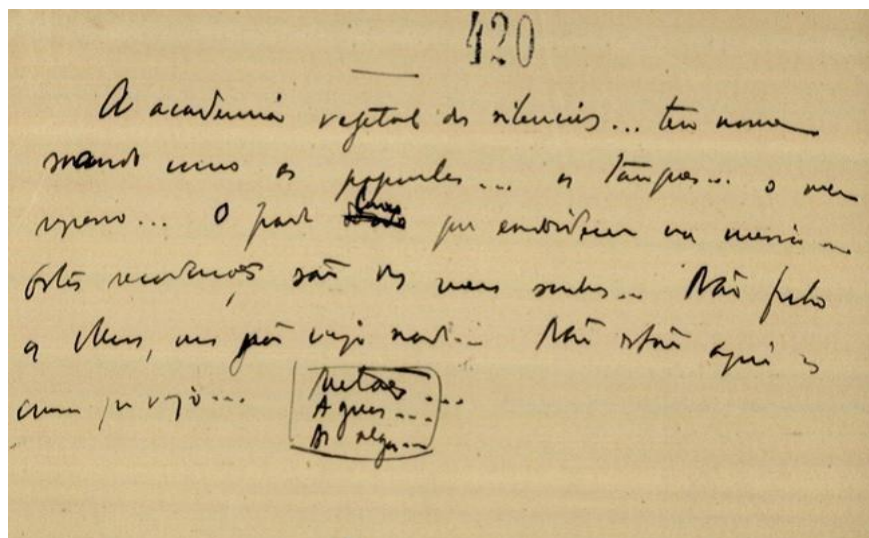 420
A academia vegetal dos silencios... teu nome
soando como as papoulas... os tanques... o meu
regresso... O padre louco que endoideceu na missa...
Estas recordações são dos meus sonhos... Não fecho
os olhos, mas não vejo nada... Não estão aqui as
cousas que vejo...
Aguas...